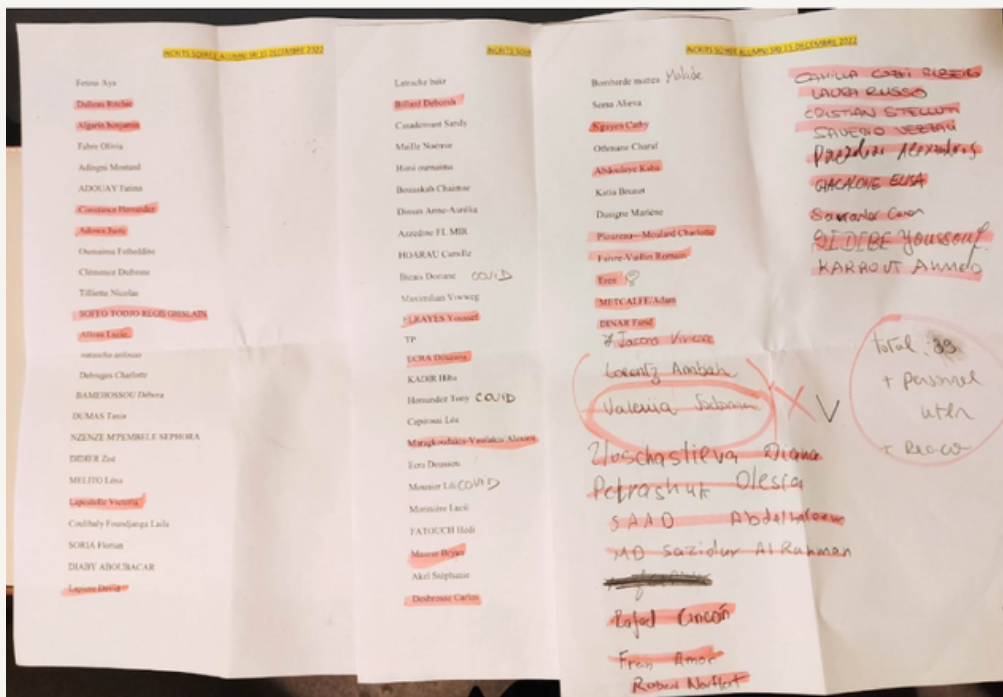 INCRITS SOIREE ALUMNI SRI 15 DECEMBRE 2022
Fetma Aya
Dalleau Ritchie
Algarin Benjamin
Fabre Olivia
Adingni Montand
ADOUAY Fatima
Constance Hernandez
Adowa Juste
Oumaima Fethoddine
Clémence Dufresne
Tilliette Nicolas
SOFFO TODJO REGIS GHISLAIN
Alleau Lucie
Debruges Charlotte
BAMEHOSSOU Débora
DUMAS Tania
NZENZE M'PEMBELE SEPHORA
DIDIER Zoé
MELITO Léna
Lapostolle Victoria
Coulibaly Foundjanga Laila
SORIA Florian
DIABY ABOUBACAR
Lapierre
INCRITS SOIREE
Latreche bakr
Billard Déborah
Casademont Sandy
Maille Noémie
Horri oumaima
Bouaakab Chaimae
Dimun Anne-Aurélia
Azzedine EL MIR
HOARAU Camille
Bicais Doriane COVID
Maximilian Vowweg
ELRAYES Youssef
TP
ECRA Doussou
KADIR Hiba
Hernandez Tony COVID
Capirossi Léa
Maragkoudakis-Vasilakis Alexios
Ecra Doussou
Mousier Lili COVID
Morinière Lucie
TATOUCH Hédi
Maurer Bryan
Akel Stéphanie
Desbrosse Carlos
INCRITS SOIREE ALUMNI SRI 15 DECEMBRE 2022
Bombarde mattea
Sema Alieva
Nguyen Cathy
Othmane Charaf
Abdoulaye Kaba
Katia Bouzut
Dusigne Marlène
Ploureau--Moulard Charlotte
Faivre-Vuillin Romain
Eren
METCALFE Adam
DINAR Farid
Jacoro Viviane
Lorentz Ambah
Valeriia
X V
Zloschastieva Diana
Petrashuk Olesia
SAAD
MD Sazidur Al Rahman
Rafael Cincón
Fran Amor
Robert
CAMILLA
LAURA RUSSO
CRISTIAN STELLUTI
SAVERIO VEZZALI
GIACALONE ELISA
DIDIBE YOUSSOUF
KARROUT AHMED
total : 39
+ personnel
+